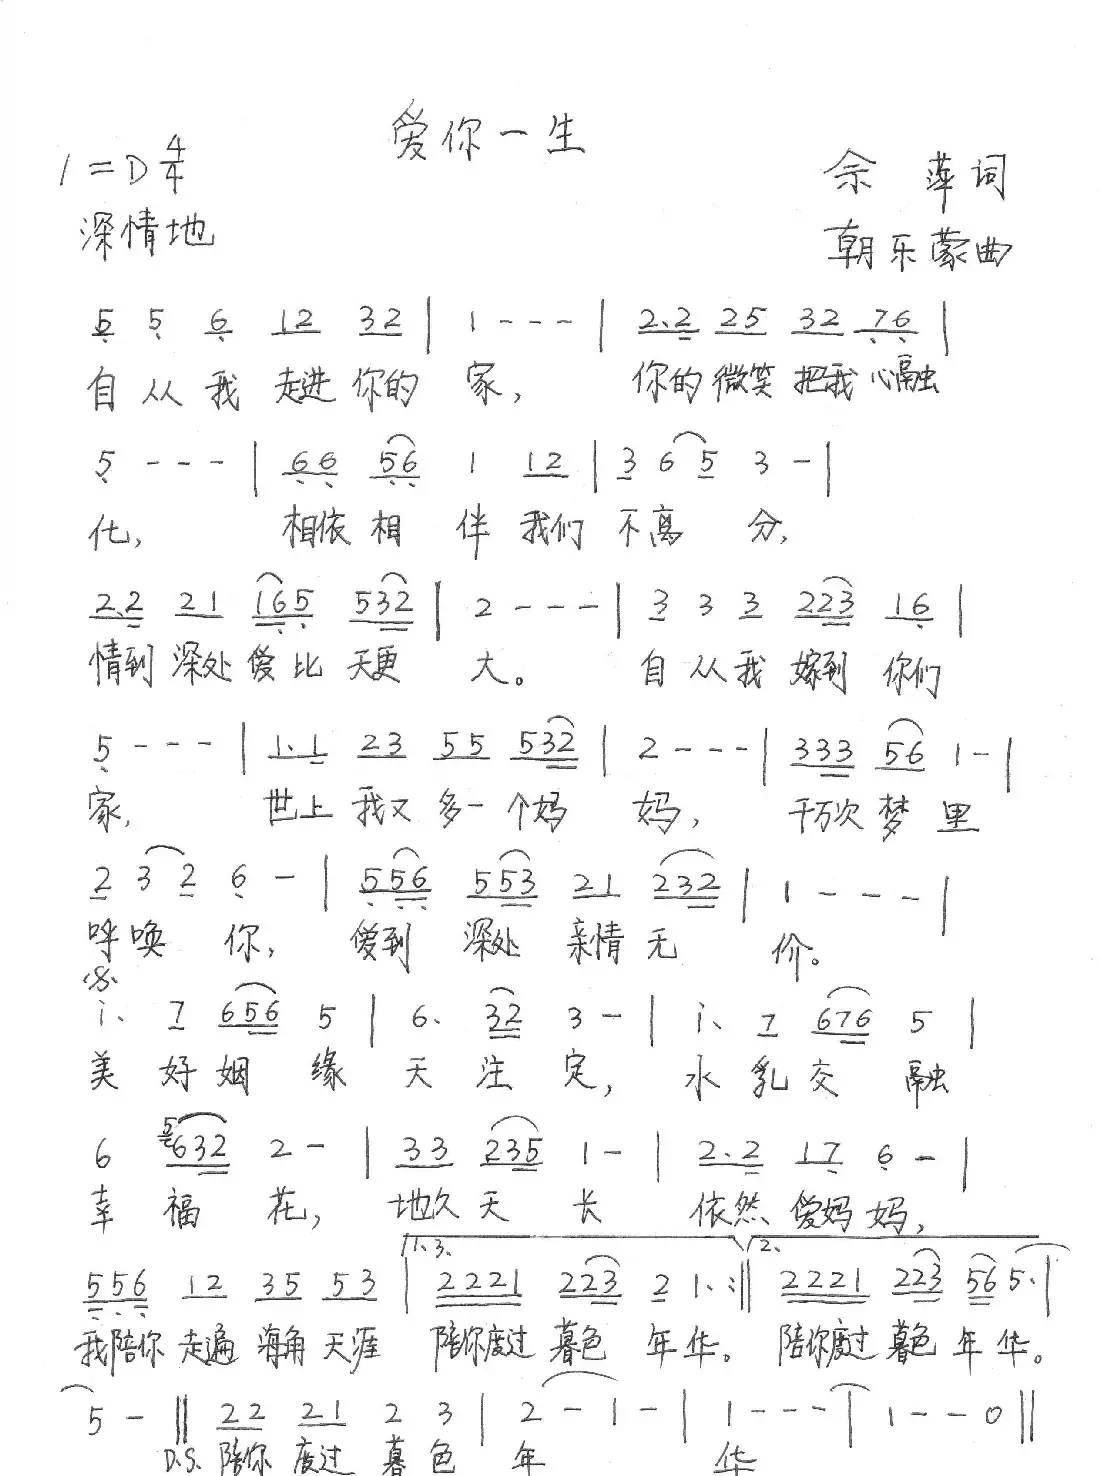 爱你一生
1=D 4/4
佘 萍词
深情地
朝乐蒙曲
5 5 6 12 32 | 1 - - - | 2.2 25 32 76 |
自从我 走进 你的 家, 你的 微笑 把我 心融
5 - - - | 66 56 1 12 | 3 6 5 3 - |
化, 相依 相 伴 我们 不离 分,
2.2 21 165 532 | 2 - - - | 3 3 3 223 16 |
情到 深处 爱比 天更 大。 自从我 嫁到 你们
5 - - - | 1.1 23 55 532 | 2 - - - | 333 56 1 - |
家, 世上 我又 多一 个妈 妈, 千万次 梦 里
2 3 2 6 - | 556 553 21 232 | 1 - - - |
呼唤 你, 爱到 深处 亲情 无 价。
i. 7 656 5 | 6. 32 3 - | i. 7 676 5 |
美 好 姻 缘 天 注 定, 水 乳 交 融
6 5632 2 - | 33 235 1 - | 2.2 17 6 - |
幸 福 花, 地久 天 长 依然 爱妈 妈,
1.3. 2.
556 12 35 53 | 2221 223 2 1. :‖ 2221 223 56 5. |
我陪你 走遍 海角 天涯 陪你度过 暮色 年 华。 陪你度过 暮色 年 华。
5 - ‖ 22 21 2 3 | 2 - 1 - | 1 - - - | 1 - - 0 ‖
D.S. 陪你 度过 暮 色 年 华